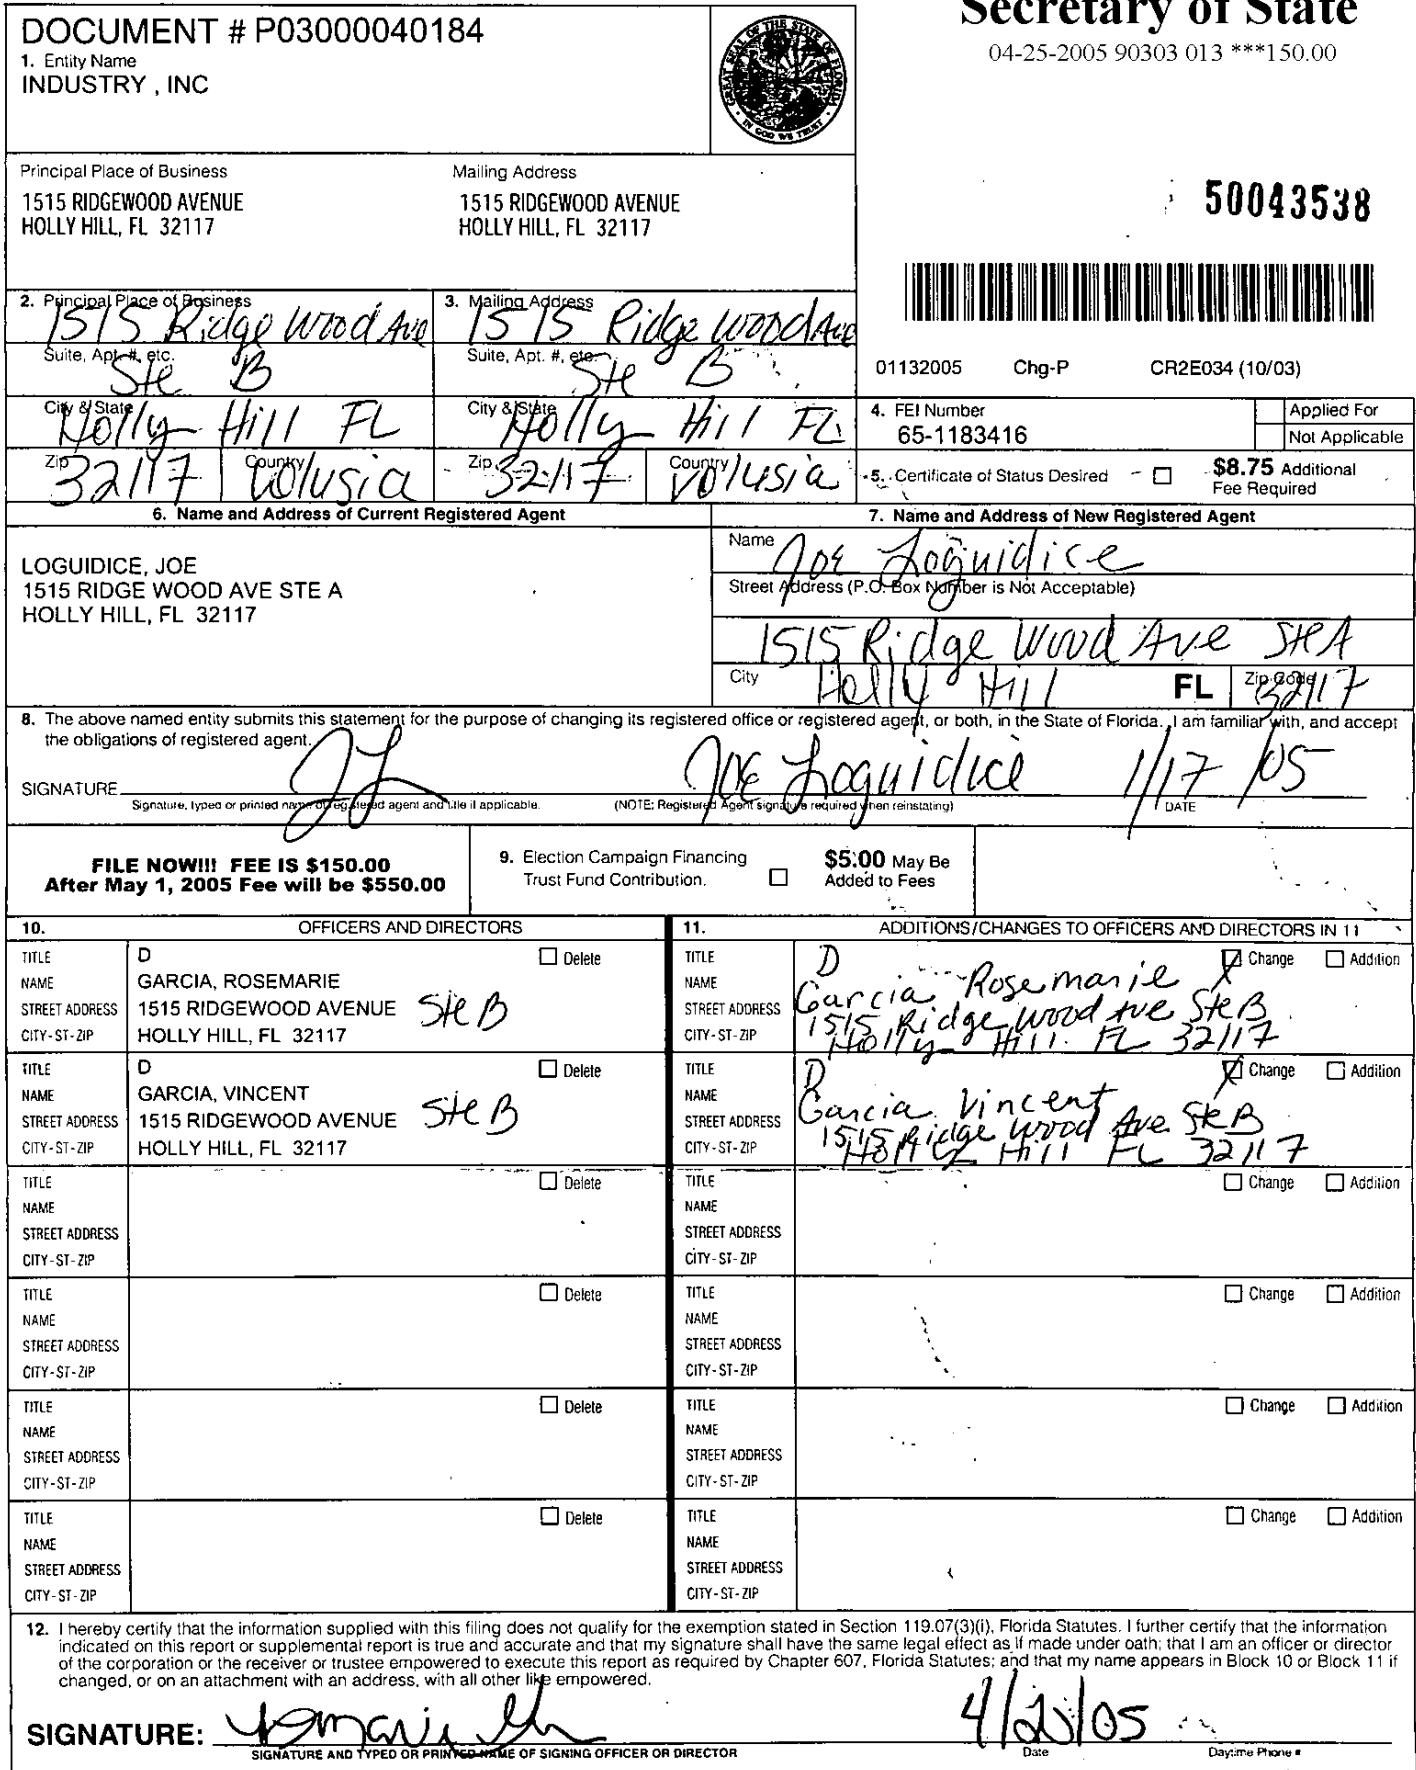 Secretary of State
04-25-2005 90303 013 ***150.00
DOCUMENT # P03000040184
1. Entity Name
INDUSTRY , INC
GREAT SEAL OF THE STATE OF FLORIDA
IN GOD WE TRUST
Principal Place of Business
1515 RIDGEWOOD AVENUE
HOLLY HILL, FL 32117
Mailing Address
1515 RIDGEWOOD AVENUE
HOLLY HILL, FL 32117
50043538
2. Principal Place of Business
1515 Ridge Wood Ave
Suite, Apt. #, etc.
Ste B
City & State
Holly Hill FL
Zip
32117
Country
Volusia
3. Mailing Address
1515 Ridge Wood Ave
Suite, Apt. #, etc.
Ste B
City & State
Holly Hill FL
Zip
32117
Country
Volusia
01132005 Chg-P CR2E034 (10/03)
4. FEI Number
65-1183416
Applied For
Not Applicable
5. Certificate of Status Desired
$8.75 Additional
Fee Required
6. Name and Address of Current Registered Agent
LOGUIDICE, JOE
1515 RIDGE WOOD AVE STE A
HOLLY HILL, FL 32117
7. Name and Address of New Registered Agent
Name
Joe Loguidice
Street Address (P.O. Box Number is Not Acceptable)
1515 Ridge Wood Ave Ste A
City
Holly Hill FL
Zip Code
32117
8. The above named entity submits this statement for the purpose of changing its registered office or registered agent, or both, in the State of Florida. I am familiar with, and accept
the obligations of registered agent.
SIGNATURE JL Joe Loguidice 1/17/05
Signature, typed or printed name of registered agent and title if applicable. (NOTE: Registered Agent signature required when reinstating) DATE
FILE NOW!!! FEE IS $150.00
After May 1, 2005 Fee will be $550.00
9. Election Campaign Financing
Trust Fund Contribution.
$5.00 May Be
Added to Fees
10. OFFICERS AND DIRECTORS
TITLE D Delete
NAME GARCIA, ROSEMARIE
STREET ADDRESS 1515 RIDGEWOOD AVENUE Ste B
CITY-ST-ZIP HOLLY HILL, FL 32117
TITLE D Delete
NAME GARCIA, VINCENT
STREET ADDRESS 1515 RIDGEWOOD AVENUE Ste B
CITY-ST-ZIP HOLLY HILL, FL 32117
TITLE Delete
NAME
STREET ADDRESS
CITY-ST-ZIP
TITLE Delete
NAME
STREET ADDRESS
CITY-ST-ZIP
TITLE Delete
NAME
STREET ADDRESS
CITY-ST-ZIP
TITLE Delete
NAME
STREET ADDRESS
CITY-ST-ZIP
11. ADDITIONS/CHANGES TO OFFICERS AND DIRECTORS IN 11
TITLE D Change Addition
NAME Garcia Rosemarie
STREET ADDRESS 1515 Ridge Wood Ave Ste B
CITY-ST-ZIP Holly Hill FL 32117
TITLE D Change Addition
NAME Garcia Vincent
STREET ADDRESS 1515 Ridge Wood Ave Ste B
CITY-ST-ZIP Holly Hill FL 32117
TITLE Change Addition
NAME
STREET ADDRESS
CITY-ST-ZIP
TITLE Change Addition
NAME
STREET ADDRESS
CITY-ST-ZIP
TITLE Change Addition
NAME
STREET ADDRESS
CITY-ST-ZIP
TITLE Change Addition
NAME
STREET ADDRESS
CITY-ST-ZIP
12. I hereby certify that the information supplied with this filing does not qualify for the exemption stated in Section 119.07(3)(i), Florida Statutes. I further certify that the information
indicated on this report or supplemental report is true and accurate and that my signature shall have the same legal effect as if made under oath; that I am an officer or director
of the corporation or the receiver or trustee empowered to execute this report as required by Chapter 607, Florida Statutes; and that my name appears in Block 10 or Block 11 if
changed, or on an attachment with an address, with all other like empowered.
SIGNATURE:
SIGNATURE AND TYPED OR PRINTED NAME OF SIGNING OFFICER OR DIRECTOR Date Daytime Phone #